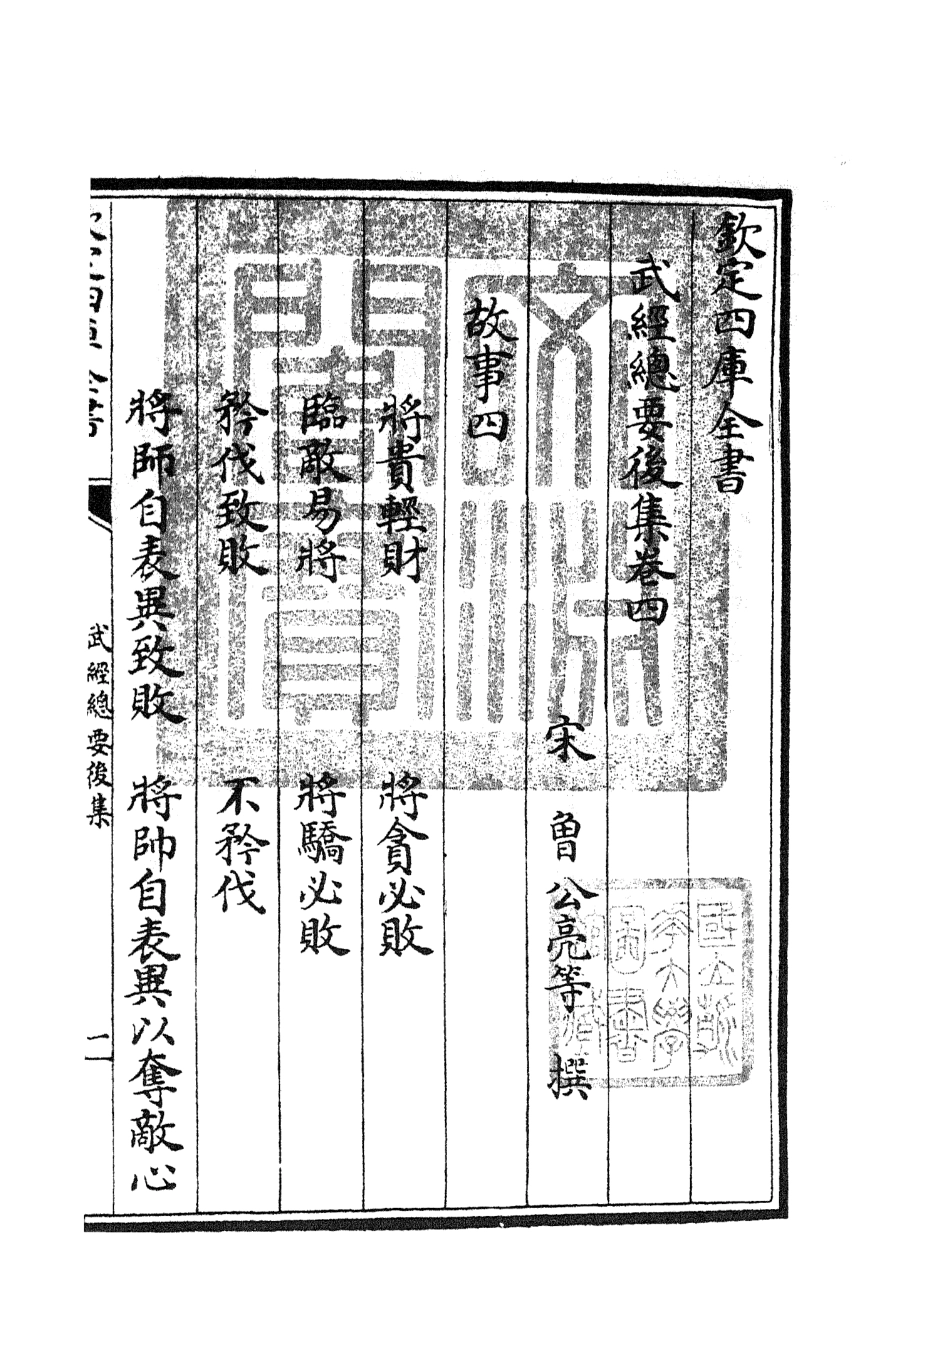 欽定四庫全書
武經總要後集卷四
宋 曾公亮等 撰
故事四
將貴輕財 將貪必敗
臨敵易將 將驕必敗
矜伐致敗 不矜伐
將師自表異致敗 將帥自表異以奪敵心
欽定四庫全書
武經總要後集
文淵閣寶